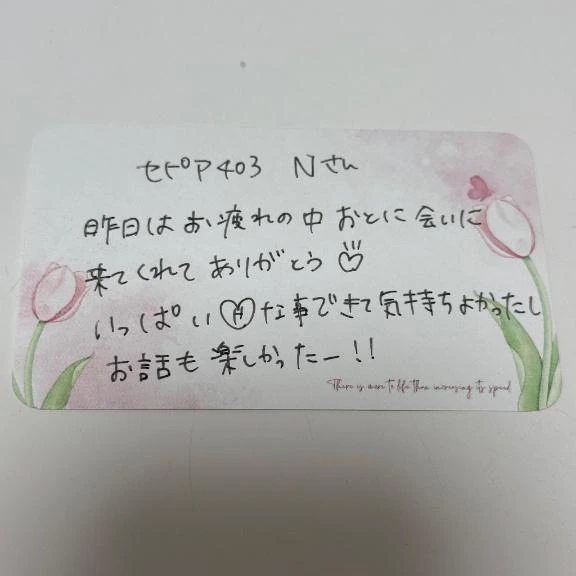 セピア403 Nさん
昨日はお疲れの中 おとに会いに
来てくれて ありがとう♡
いっぱいHな事できて気持ちよかったし
お話も楽しかったー!!
There is more to life than increasing its speed